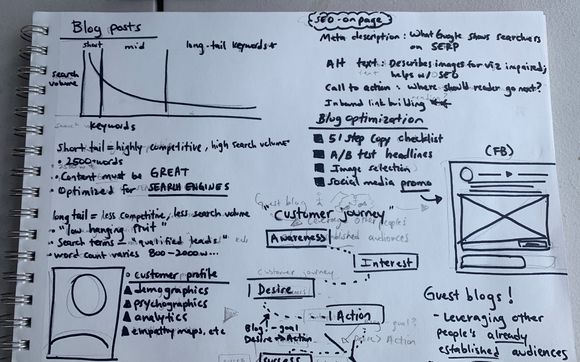 Blog posts
short mid long-tail keywords
search volume
Keywords
Short tail = highly competitive, high search volume
• 2500 words
• Content must be GREAT
• Optimized for SEARCH ENGINES
long tail = less competitive, less search volume
• "low hanging fruit"
• Search terms = "qualified leads"
• word count varies 800-2000w...
customer profile
demographics
psychographics
analytics
empathy maps, etc
SEO-on page
Meta description: What Google shows searchers
on SERP
Alt text: Describes images for viz impaired;
helps w/ SEO
Call to action: Where should reader go next?
Inbound link building
Blog optimization
51 step copy checklist
A/B test headlines
Image selection
Social media promo
(FB)
"Customer journey"
Awareness
Interest
Desire
Action
Blog! - goal
Desire → Action
Success
Guest blogs!
- Leveraging other
people's already
established audiences